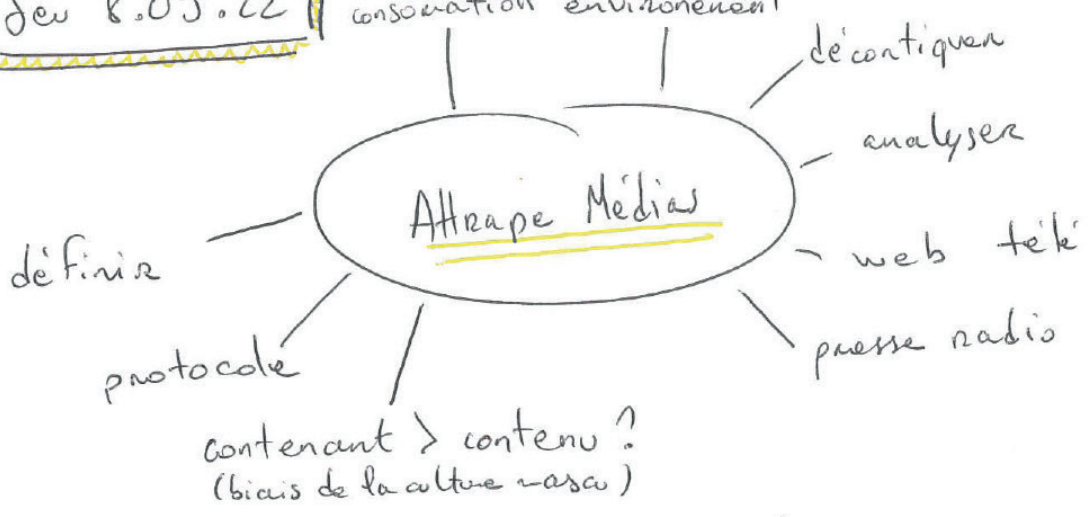 jeu 8.09.22
consomation environement
décortiquer
analyser
Attrape Médias
web télé
définir
presse radio
protocole
contenant > contenu ?
(biais de la culture mascu)